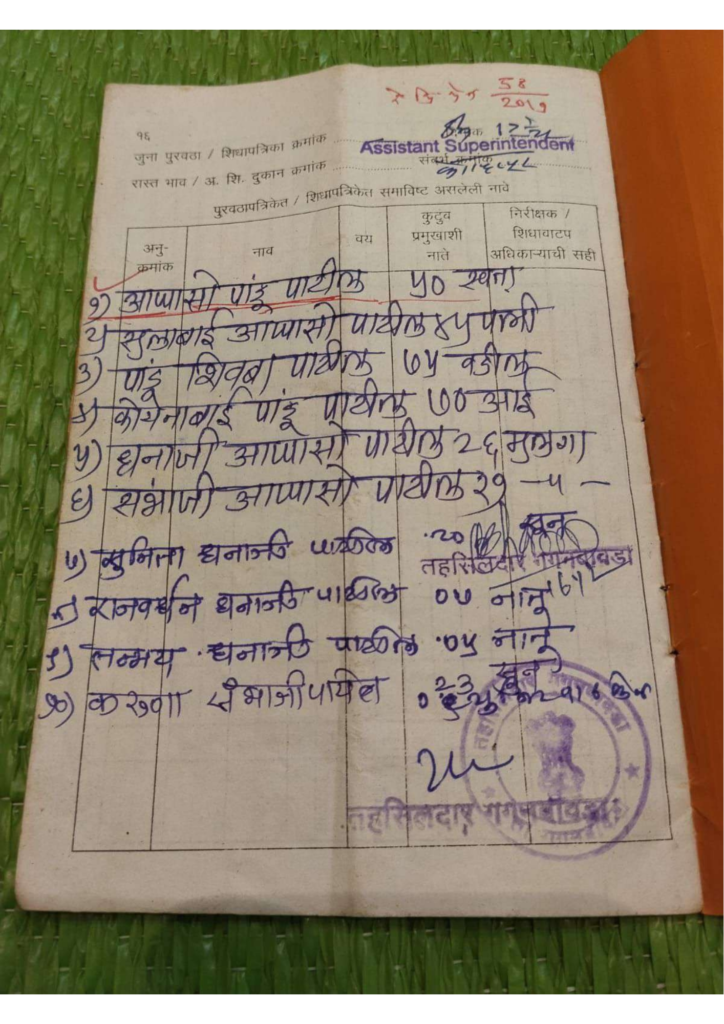 58
2019
१६
जुना पुरवठा / शिधापत्रिका क्रमांक
Assistant Superintendent
रास्त भाव / अ. शि. दुकान क्रमांक
पुरवठापत्रिकेत / शिधापत्रिकेत समाविष्ट असलेली नावे
अनु-क्रमांक नाव वय कुटुंब प्रमुखाशी नाते निरीक्षक / शिधावाटप अधिकाऱ्याची सही
१) आप्पासो पांडू पाटील ५० स्वतः
२) सुलाबाई आप्पासो पाटील ४५ पत्नी
३) पांडू शिवबा पाटील ७५ वडील
४) पांडू पाटील ७० आई
५) धनाजी आप्पासो पाटील २६ मुलगा
६) संभाजी आप्पासो पाटील २१ -५-
७) सुनिता धनाजी पाटील २० सून
तहसिलदार गगनबावडा
८) राजवर्धन धनाजी पाटील ०७ नातू
९) तन्मय धनाजी पाटील ०५ नातू
१०) करुणा संभाजी पाटील २३ सून
तहसिलदार गगनबावडा